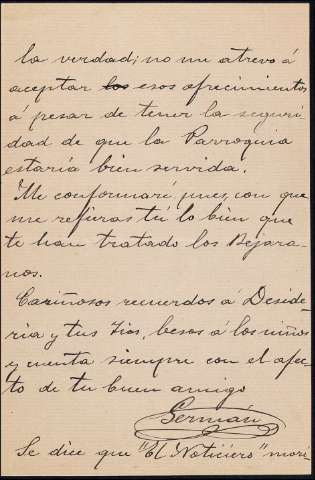 la verdad; no me atrevo á
aceptar los esos ofrecimientos
á pesar de tener la seguri
dad de que la Parroquia
estaría bien servida.
Me conformaré, pues, con que
me refieras tú lo bien que
te han tratado los Bejara-
nos.
Cariñosos recuerdos á Deside-
ria y tus Tios, besos á los niños
y cuenta siempre con el afec-
to de tu buen amigo
Germán
Se dice que "El Noticiero" mori